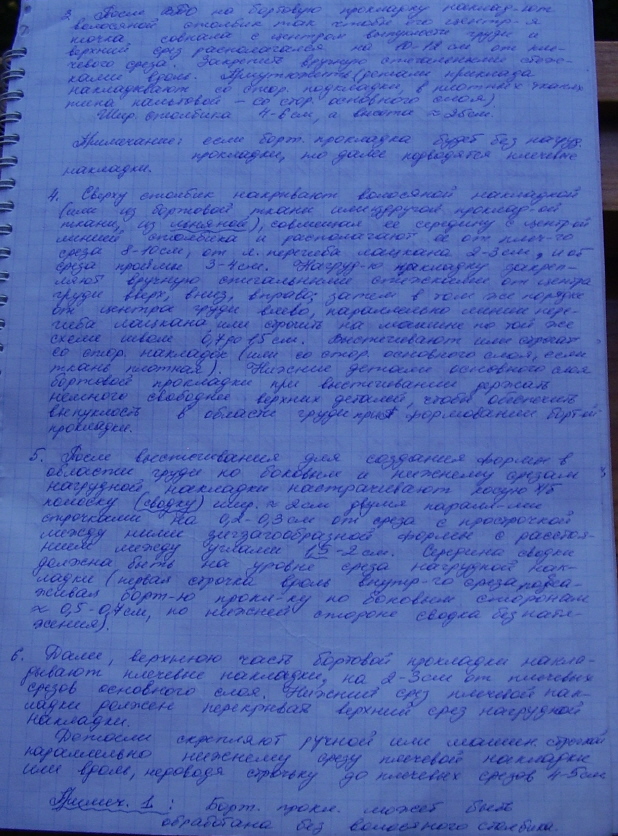 3. После ВТО на бортовую прокладку наклад-ют
волосяной столбик так чтобы его центр-я
совпала с центром выпуклости груди и
верхний срез располагался на 10-12 см от пле-
чевого среза. Закрепить вручную стегальными стеж-
ками вдоль. Приутюжить (детали приклада
накладывают со стор. подкладки, в плотных тканях
типа пальтовой – со стор основного слоя)
Шир. столбика 4-6см, а высота ≈ 25см.
Примечание: если борт. прокладка будет без нагруд.
прокладки, то далее плечевые
накладки.
4. Сверху столбик накрывают волосяной накладкой
(или из бортовой ткани или упругой проклад-ой
ткани, из льняной), совмещая её середину с центр-ой
линией столбика и располагают её от плеч-го
среза 8-10см, от л. перегиба лацкана 2-3см, и от
среза проймы 3-4см. Нагруд-ю накладку закреп-
ляют вручную стегальными стежками от центра
груди вверх, вниз, вправо; затем в том же порядке
от центра груди влево, параллельно линии пере-
гиба лацкана или строчат на машине по той же
схеме швом 0,7 до 1,5 см. Выстегивают или строчат
со стор. накладок (или со стор. основного слоя, если
ткань плотная). Нижние детали основного слоя
бортовой прокладки при выстегивании держать
немного свободнее верхних деталей, чтобы обеспечить
выпуклость в области груди при формовании борт-й
прокладки.
5. После выстегивания для создания формы в
области груди по боковым и нижнему срезам
нагрудной накладки настрачивают косую 45
полоску (сводку) шир. ≈ 2см двумя паралл-ми
строчками на 0,2-0,3см от среза с прострочкой
между ними зигзагообразной формы с расстоя-
нием между углами 1,5-2см. Середина сводки
должна быть на уровне среза нагрудной нак-
ладки (первая строчка вдоль внутр-го среза, поса-
живая борт-ю прокл-ку по боковым сторонам
≈ 0,5-0,7см, по нижней стороне сводка без натя-
жения).
6. Далее, верхнюю часть бортовой прокладки накла-
дывают плечевые накладки, на 2-3см от плечевых
срезов основного слоя. Нижний срез плечевой нак-
ладки должен перекрывая верхний срез нагрудной
накладки.
Детали скрепляют ручной или машин. строчкой
параллельно нижнему срезу плечевой накладки
или вдоль, не доводя строчку до плечевых срезов 4-5см
Примеч. 1: Борт. прокл. может быть
обработана без волосяного столбика